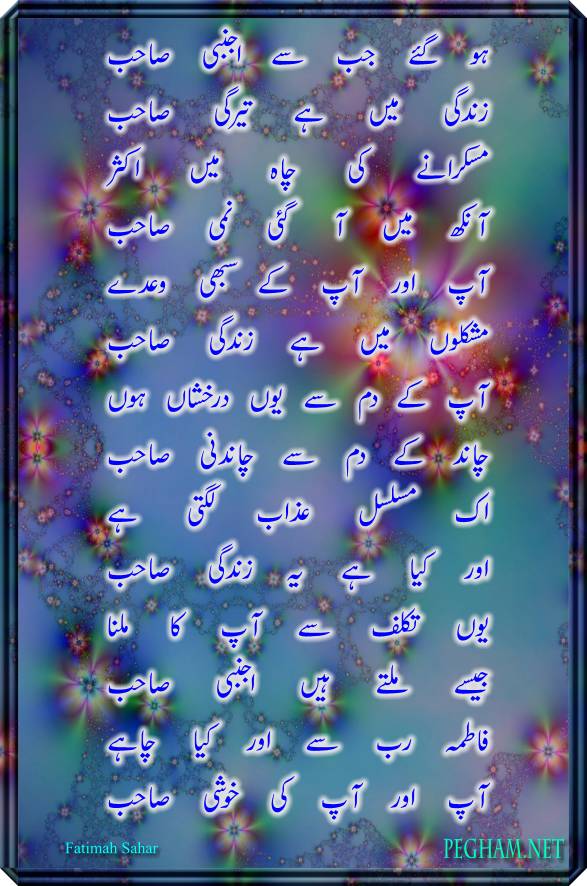 ہو گئے جب سے اجنبی صاحب
زندگی میں ہے تیرگی صاحب
مسکرانے کی چاہ میں اکثر
آنکھ میں آ گئی نمی صاحب
آپ اور آپ کے سبھی وعدے
مشکلوں میں ہے زندگی صاحب
آپ کے دم سے یوں درخشاں ہوں
چاند کے دم سے چاندنی صاحب
اک مسلسل عذاب لگتی ہے
اور کیا ہے یہ زندگی صاحب
یوں تکلف سے آپ کا ملنا
جیسے ملتے ہیں اجنبی صاحب
فاطمہ رب سے اور کیا چاہے
آپ اور آپ کی خوشی صاحب
Fatimah Sahar
PEGHAM.NET